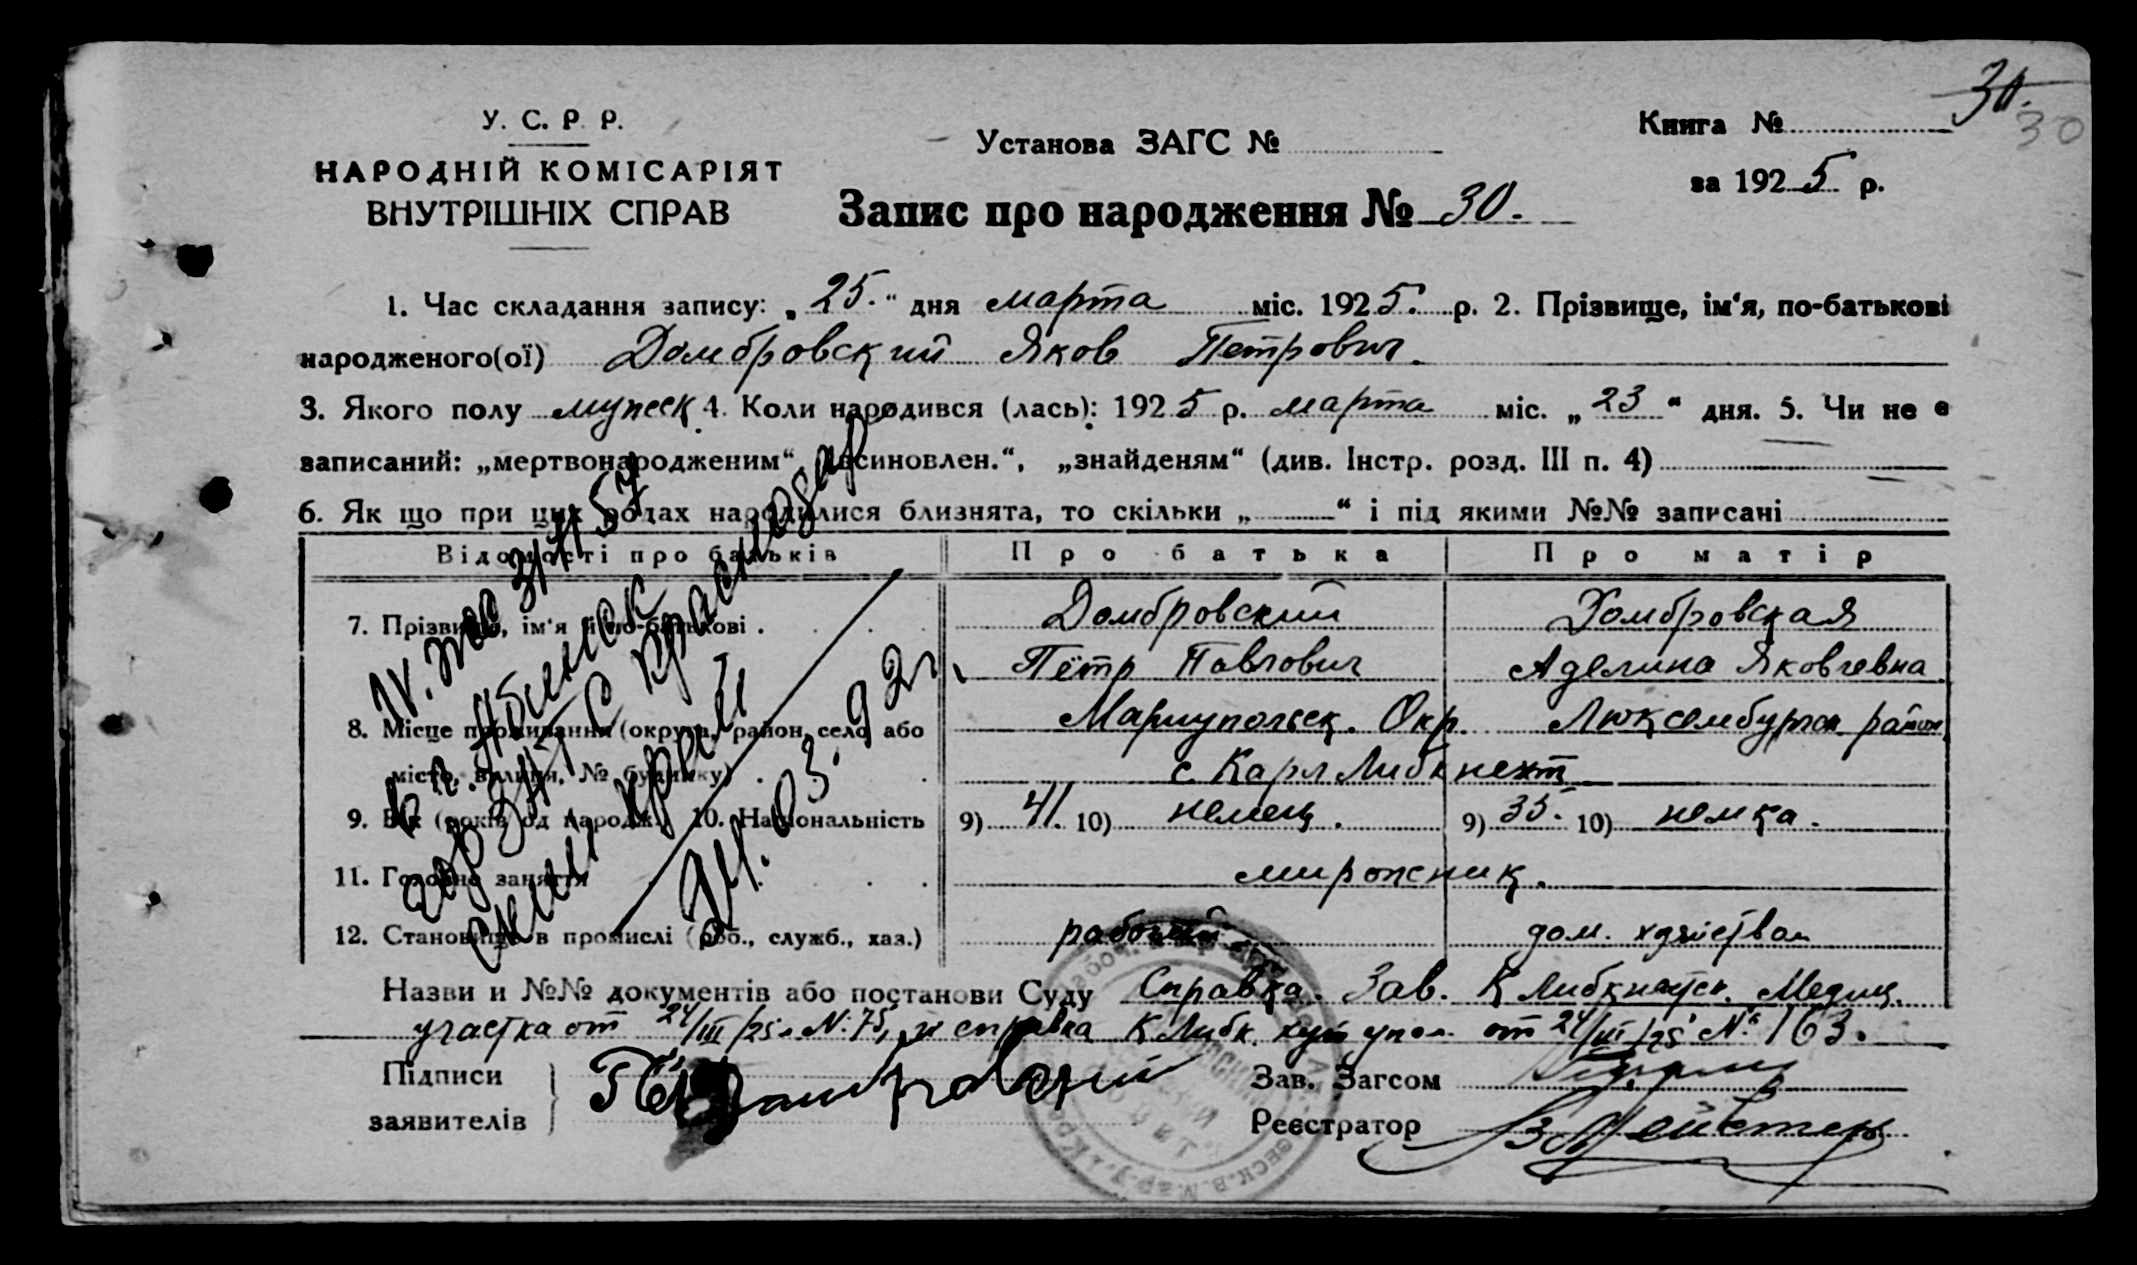 30.
30
У. С. Р. Р.
НАРОДНІЙ КОМІСАРІЯТ
ВНУТРІШНІХ СПРАВ
Установа ЗАГС №
Книга №
за 1925 р.
Запис про народження № 30.
1. Час складання запису: „25.“ дня марта міс. 1925. р. 2. Прізвище, ім‘я, по-батькові
народженого(ої) Домбровский Яков Петрович.
3. Якого полу мужеск. 4. Коли народився (лась): 1925 р. марта міс. „23“ дня. 5. Чи не є
записаний: „мертвонародженим“, „всиновлен.“, „знайденям“ (див. Інстр. розд. III п. 4)
6. Як що при цих родах народилися близнята, то скільки „ “ і під якими №№ записані
Відомості про батьків Про батька Про матір
7. Прізвище, ім‘я й по-батькові . Домбровский Домбровская
Пётр Павлович Аделина Яковлевна
8. Місце проживання (округа, район, село або Мариупольск. Окр. Люксембургск. район
місто, вулиця, № будинку) с. Карл Либкнехт
9. Вік (років од народж.) 10. Національність 9) 41. 10) немец. 9) 35. 10) немка.
11. Головне заняття мирожник.
12. Становище в промислі (роб., служб., хаз.) рабочий дом. хозяйством
Назви и №№ документів або постанови Суду Справка. Зав. К Либкнехтск. Медиц.
участка от 24/III/25 г. №: 75, и справка К Либк. упол. от 24/III/25 № 163.
Підписи
заявителів
Домбровский
Зав. Загсом
Реєстратор
57
Абинск
ЗАГС
Краснодар
край
24.03.92г.